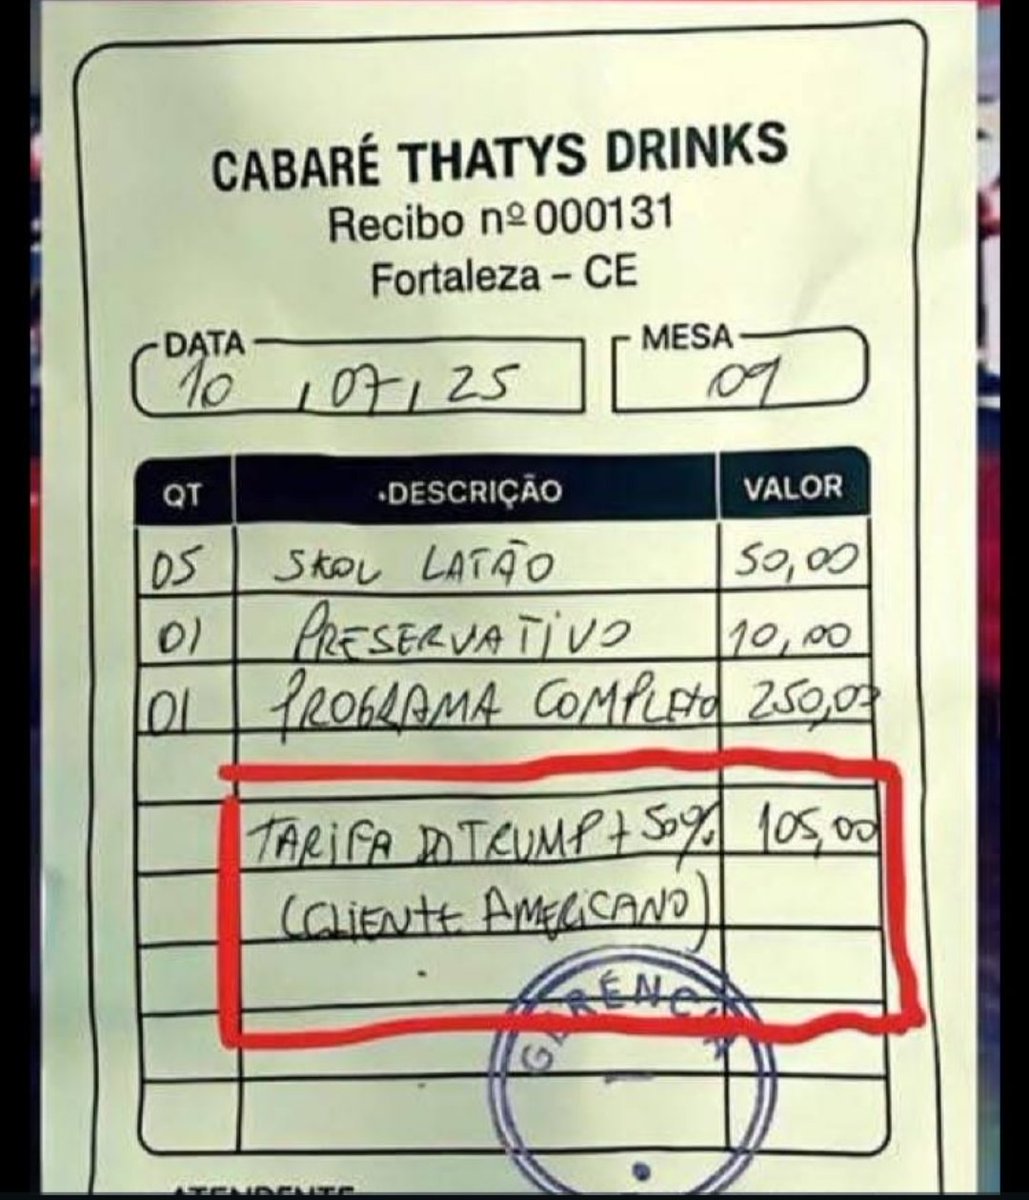 CABARÉ THATYS DRINKS
Recibo nº 000131
Fortaleza – CE
DATA MESA
10 / 07 / 25 09
QT DESCRIÇÃO VALOR
05 SKOL LATÃO 50,00
01 PRESERVATIVO 10,00
01 PROGRAMA COMPLETO 250,00
TARIFA DO TRUMP + 50% 105,00
(CLIENTE AMERICANO)
GERÊNCIA
ATENDENTE